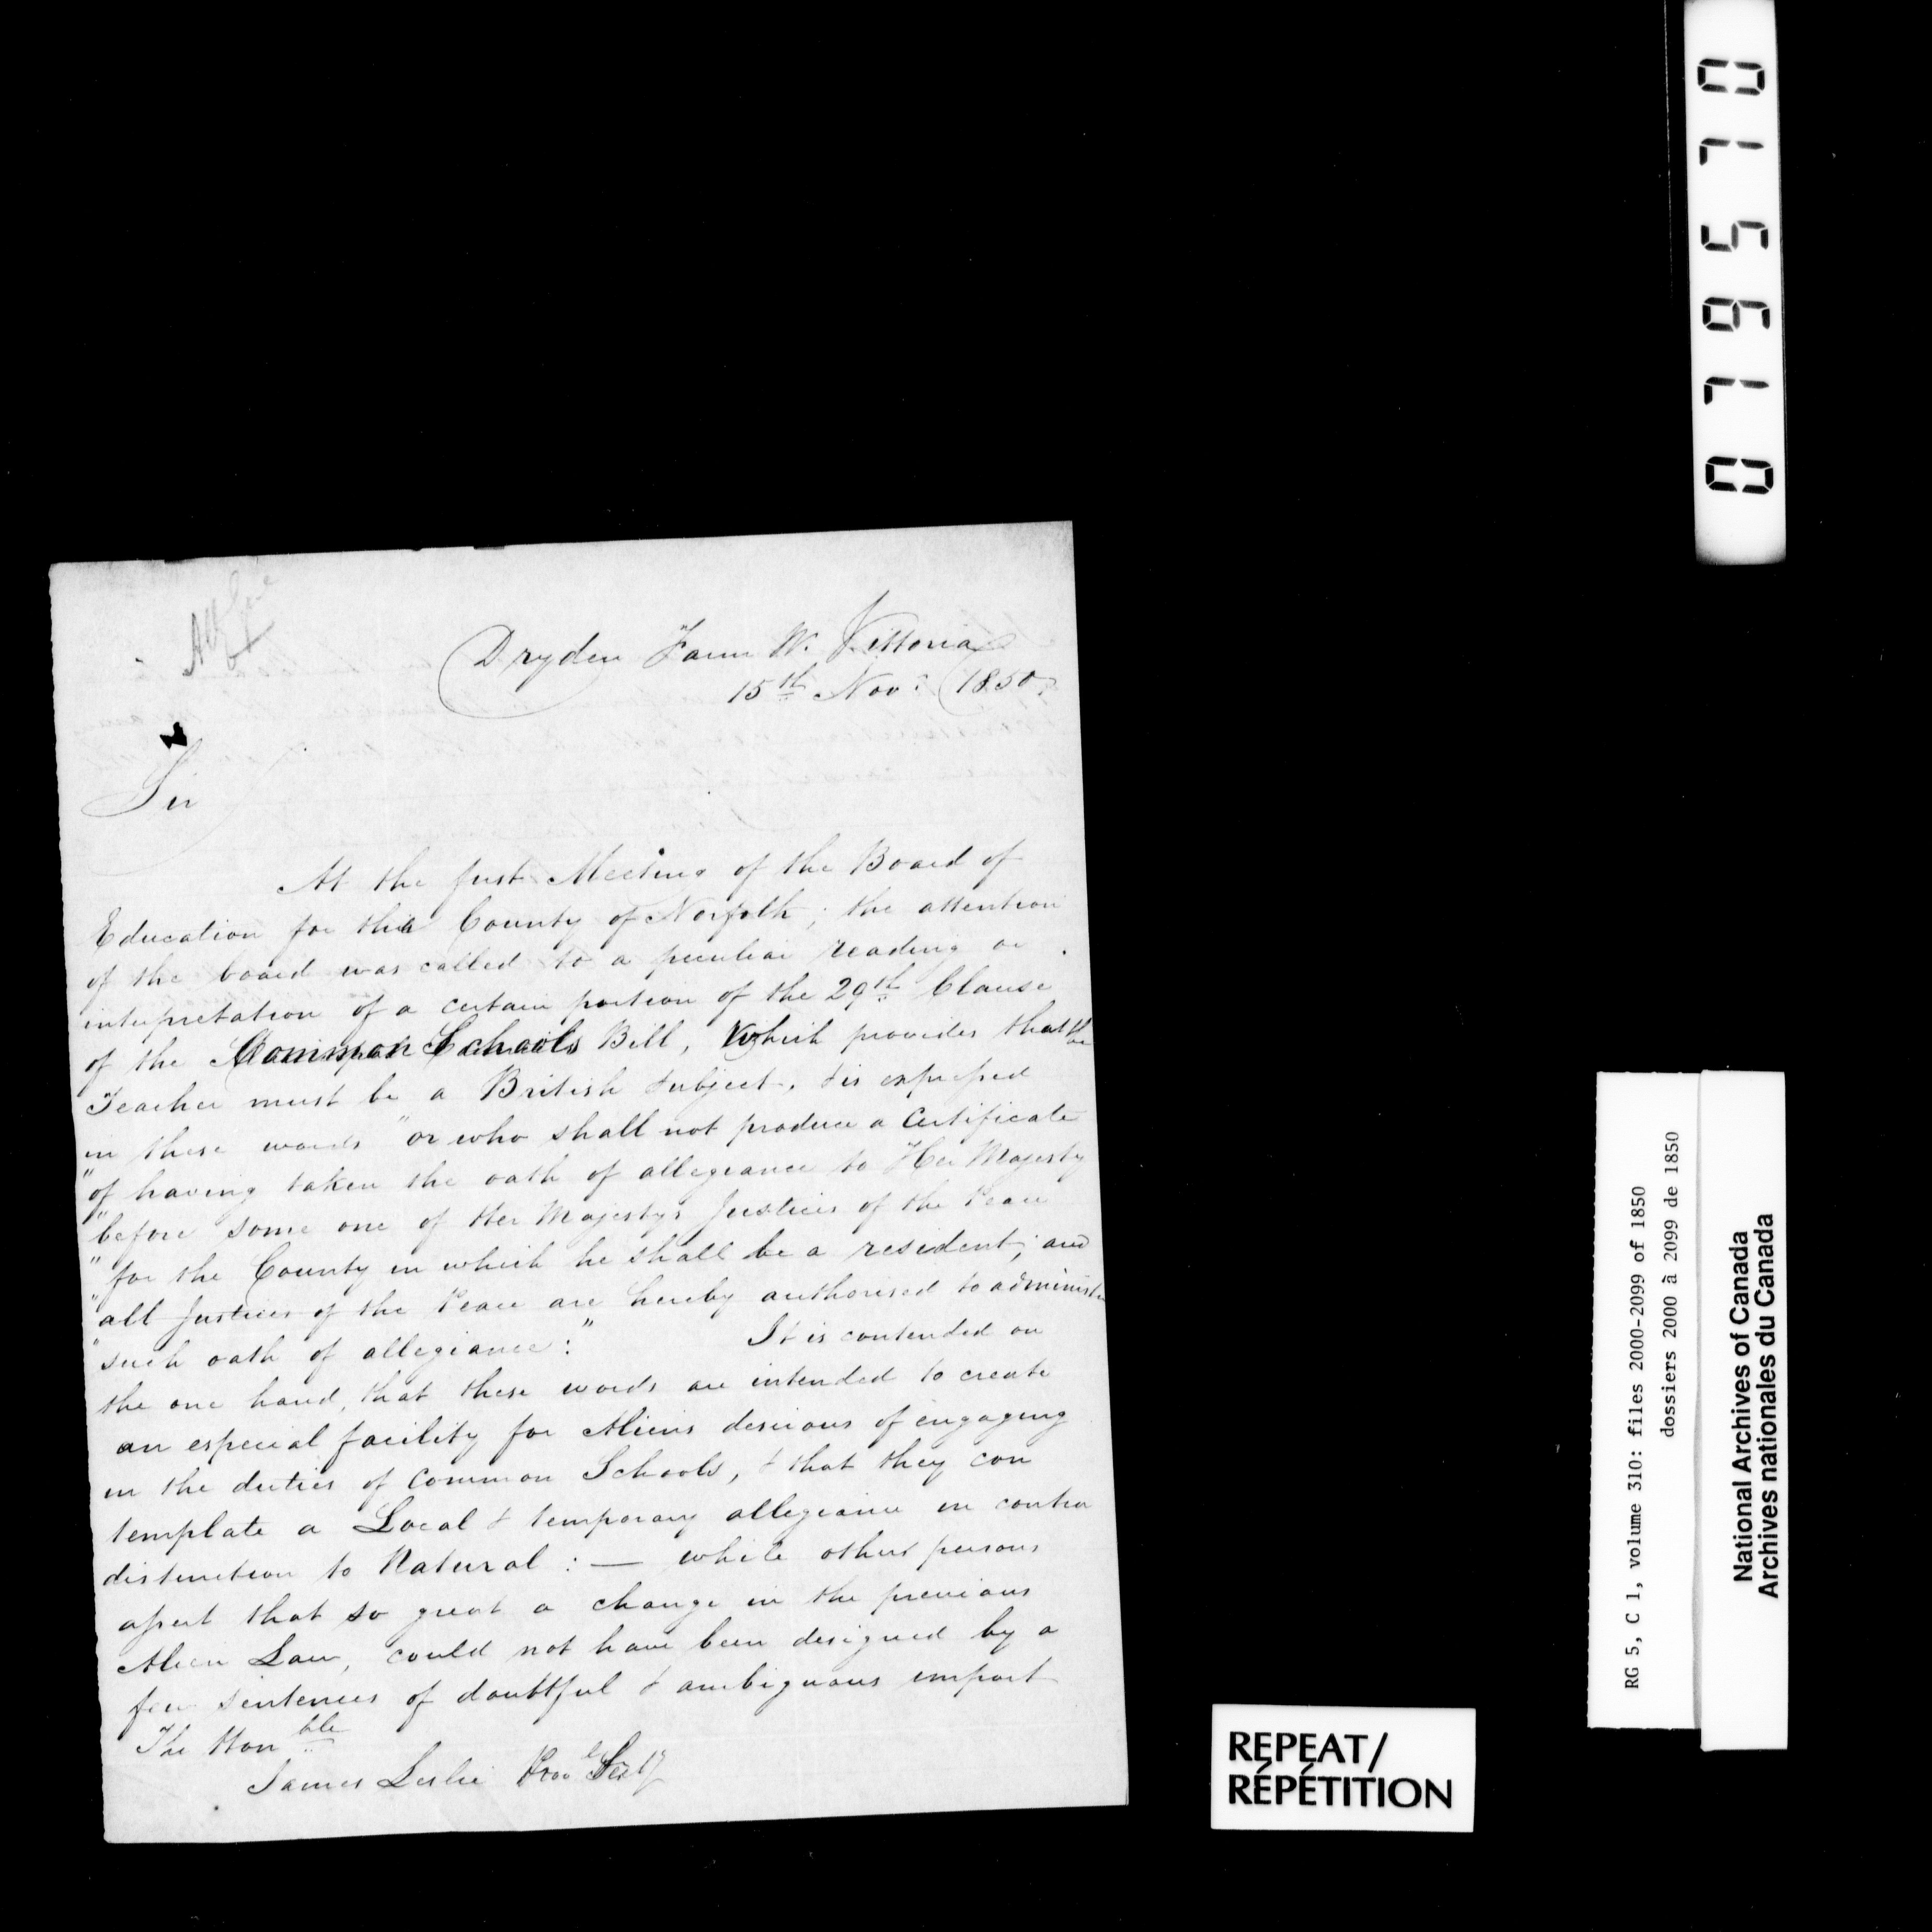 Dryden Farm W. Vittoria
15th Nov. 1850
Sir
At the first Meeting of the Board of
Education for the County of Norfolk; the attention
of the board was called to a peculiar reading or
interpretation of a certain portion of the 29th Clause
of the Common Schools Bill, Which provides that the
Teacher must be a British Subject, & is expressed
in these words "or who shall not produce a Certificate
"of having taken the oath of allegiance to Her Majesty
"before some one of Her Majestys Justices of the Peace
"for the County in which he shall be a resident; and
"all Justices of the Peace are hereby authorised to administer
"such oath of allegiance:" It is contended on
the one hand, that these words are intended to create
an especial facility for Aliens desirous of engaging
in the duties of Common Schools, & that they con
template a Local & temporary allegiance in contra
distinction to Natural : — while other persons
assert that so great a change in the previous
Alien Law, could not have been designed by a
few sentences of doubtful & ambiguous import
The Honble
James Leslie Provl Secty
015610
RG 5, C 1, volume 310: files 2000-2099 of 1850
dossiers 2000 à 2099 de 1850
National Archives of Canada
Archives nationales du Canada
REPEAT/
RÉPÉTITION